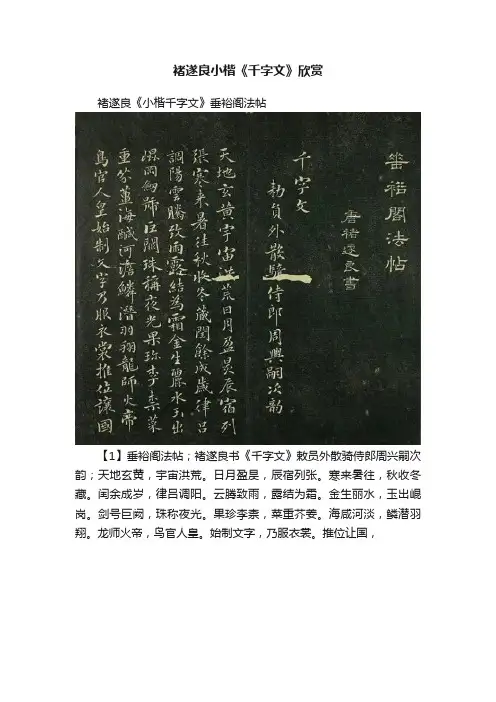 褚遂良小楷《千字文》欣赏
褚遂良《小楷千字文》垂裕阁法帖
垂裕閣法帖
唐褚遂良書
千字文
勅員外散騎侍郎周興嗣次韵
天地玄黄宇宙洪荒日月盈昃辰宿列
張寒来暑往秋收冬藏閏餘成歳律吕
調陽雲騰致雨露結為霜金生麗水玉出
崐岡劔號巨闕珠稱夜光果珎李柰菜
重芥薑海鹹河澹鱗潛羽翔龍師火帝
鳥官人皇始制文字乃服衣裳推位讓國
【1】垂裕阁法帖；褚遂良书《千字文》敕员外散骑侍郎周兴嗣次
韵；天地玄黄，宇宙洪荒。日月盈昃，辰宿列张。寒来暑往，秋收冬
藏。闰余成岁，律吕调阳。云腾致雨，露结为霜。金生丽水，玉出崐
岗。剑号巨阙，珠称夜光。果珍李柰，菜重芥姜。海咸河淡，鳞潜羽
翔。龙师火帝，鸟官人皇。始制文字，乃服衣裳。推位让国，